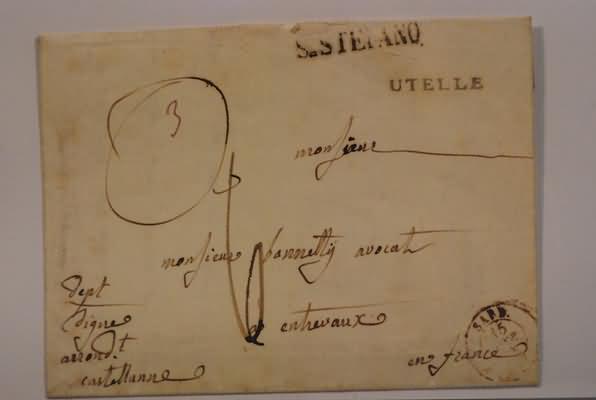 Sn STEFANO
UTELLE
3
monsieur
monsieur avocat
a entrevaux
dept
digne
arrond.t
castellanne
en france
SARD.
15